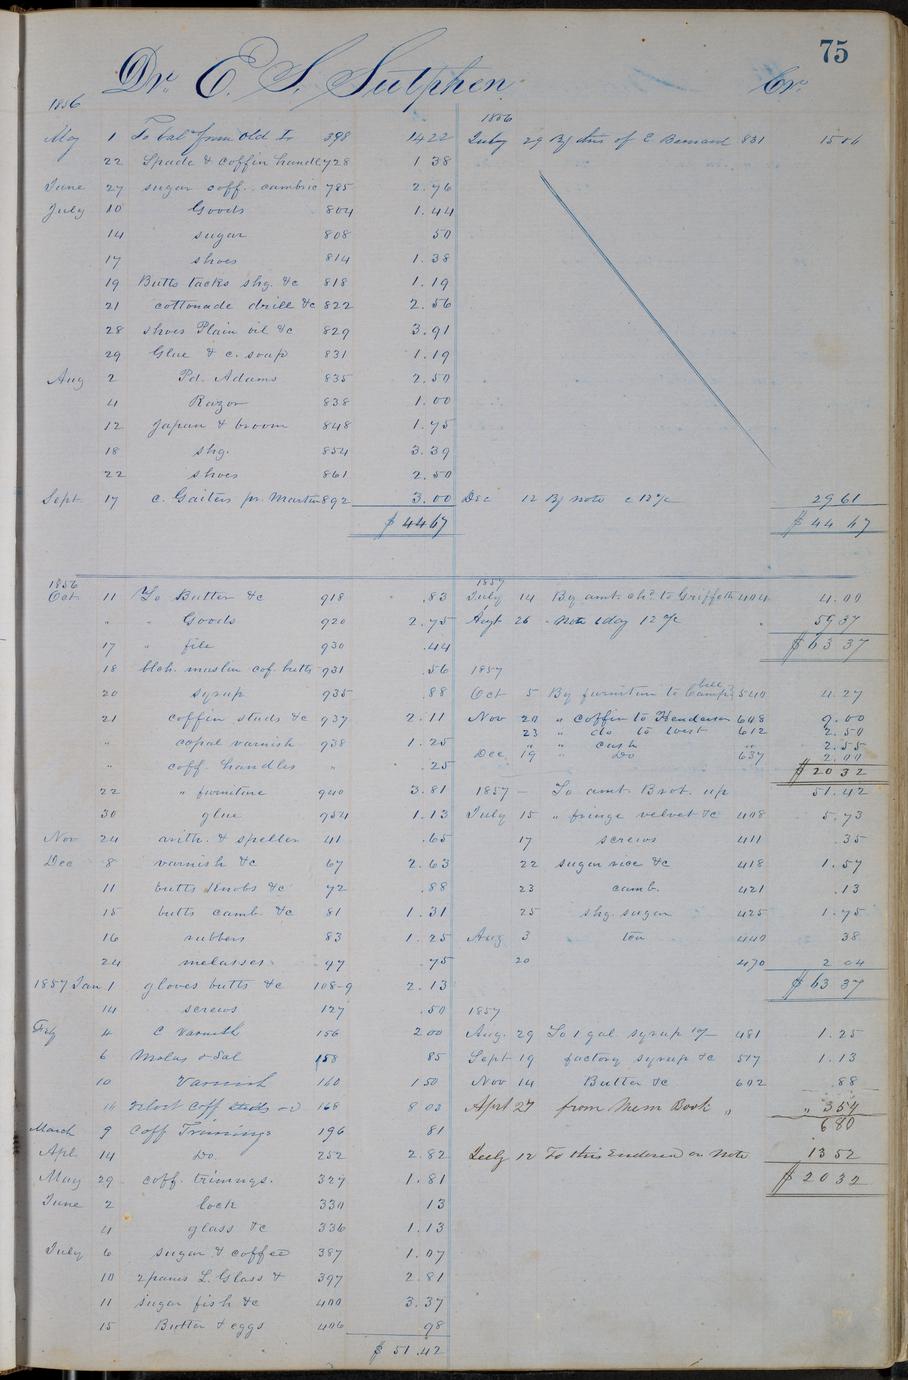 75
Dr. E. S. Sutphen Cr.
1856
May 1 To bal from old L 398 1422
22 Spade & coffin handle 728 1 38
June 27 sugar coff. cambric 785 2.76
July 10 Goods 804 1.44
14 sugar 808 50
17 shoes 814 1.38
19 Butts tacks shg. &c 818 1.19
21 cottonade drill &c 822 2.56
28 shoes Plain oil &c 829 3.91
29 Glue & c. soap 831 1.19
Aug 2 Pd. Adams 835 2.50
4 Razor 838 1.00
12 Japan & broom 848 1.75
18 shg. 854 3.39
22 shoes 861 2.50
Sept 17 c. Gaiters pr. Martin 892 3.00
$ 4467
1856
July 29 By of E 831 1506
Dec 12 By note @ 12 %c 2961
$ 44 67
1856
Oct 11 To Butter &c 918 .83
" " Goods 920 2.75
17 " file 930 .44
18 blch. muslin cof. butts 931 .56
20 syrup 935 .88
21 coffin studs &c 937 2.11
" copal varnish 938 1.25
" coff. handles " .25
22 " furniture 940 3.81
30 glue 954 1.13
Nov 24 arith. & speller 41 .65
Dec 8 varnish &c 67 2.63
11 butts Knobs &c 72 .88
15 butts camb. &c 81 1.31
16 rubbers 83 1.25
24 melasses 97 75
1857 Jan 1 gloves butts &c 108-9 2.13
14 screws 127 .50
Feby 4 C Varnish 156 2 00
6 Molas & Sal 158 85
10 Varnish 160 1 50
Coff studs 168 8 03
March 9 Coff Trimings 196 81
Apl. 14 Do. 252 2.82
May 29 coff. trimings. 327 1.81
June 2 lock 330 13
4 glass &c 336 1.13
July 6 sugar & coffee 387 1.07
10 2 panes L. Glass & 397 2.81
11 sugar fish &c 400 3.37
15 Butter & eggs 406 98
$ 51.42
1857
July 14 By amt. chd. to Griffeth 404 4.00
Augt 26 " Note 1 day 12 %c 5937
$ 63 37
1857
Oct 5 By furniture to Camps bill 540 4.27
Nov 20 " coffin to Henderson 608 9.00
23 " do to West 612 2.50
" " cash " 2.55
Dec 19 " Do 637 2.00
$ 20 32
1857 - To amt. Brot. up 51.42
July 15 " fringe velvet &c 408 5.73
17 screws 411 .35
22 sugar rice &c 418 1.57
23 camb. 421 .13
25 shg. sugar 425 1.75
Aug 3 440 38
20 470 2 04
$ 63 37
1857
Aug. 29 To 1 gal syrup 481 1.25
Sept 19 factory syrup &c 517 1.13
Nov 14 Butter &c 602 .88
Aprl 27 from Mem Book " " 354
680
July 12 To this Endorsed on Note 1352
$ 20 32